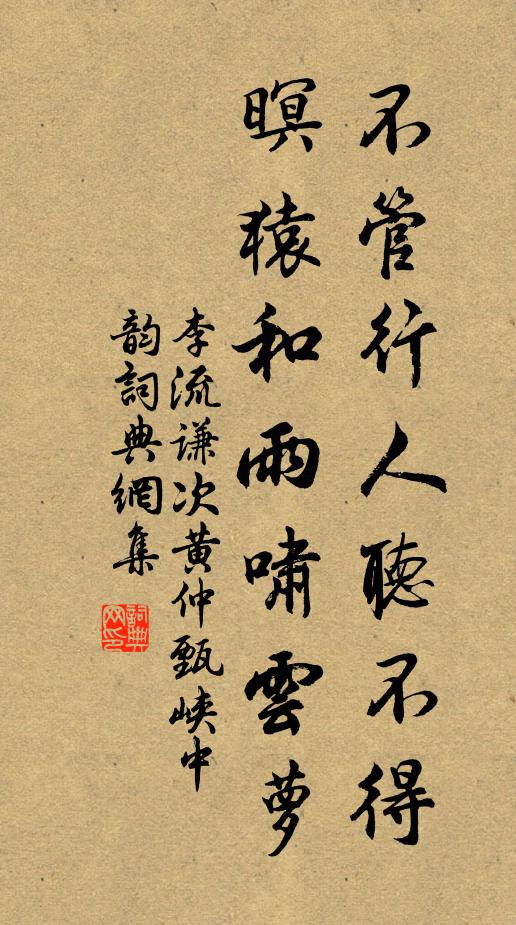 不管行人聽不得
暝猿和雨嘯雲夢
李流谦次黄仲甄峽中
韵詞典網集
詞典網印